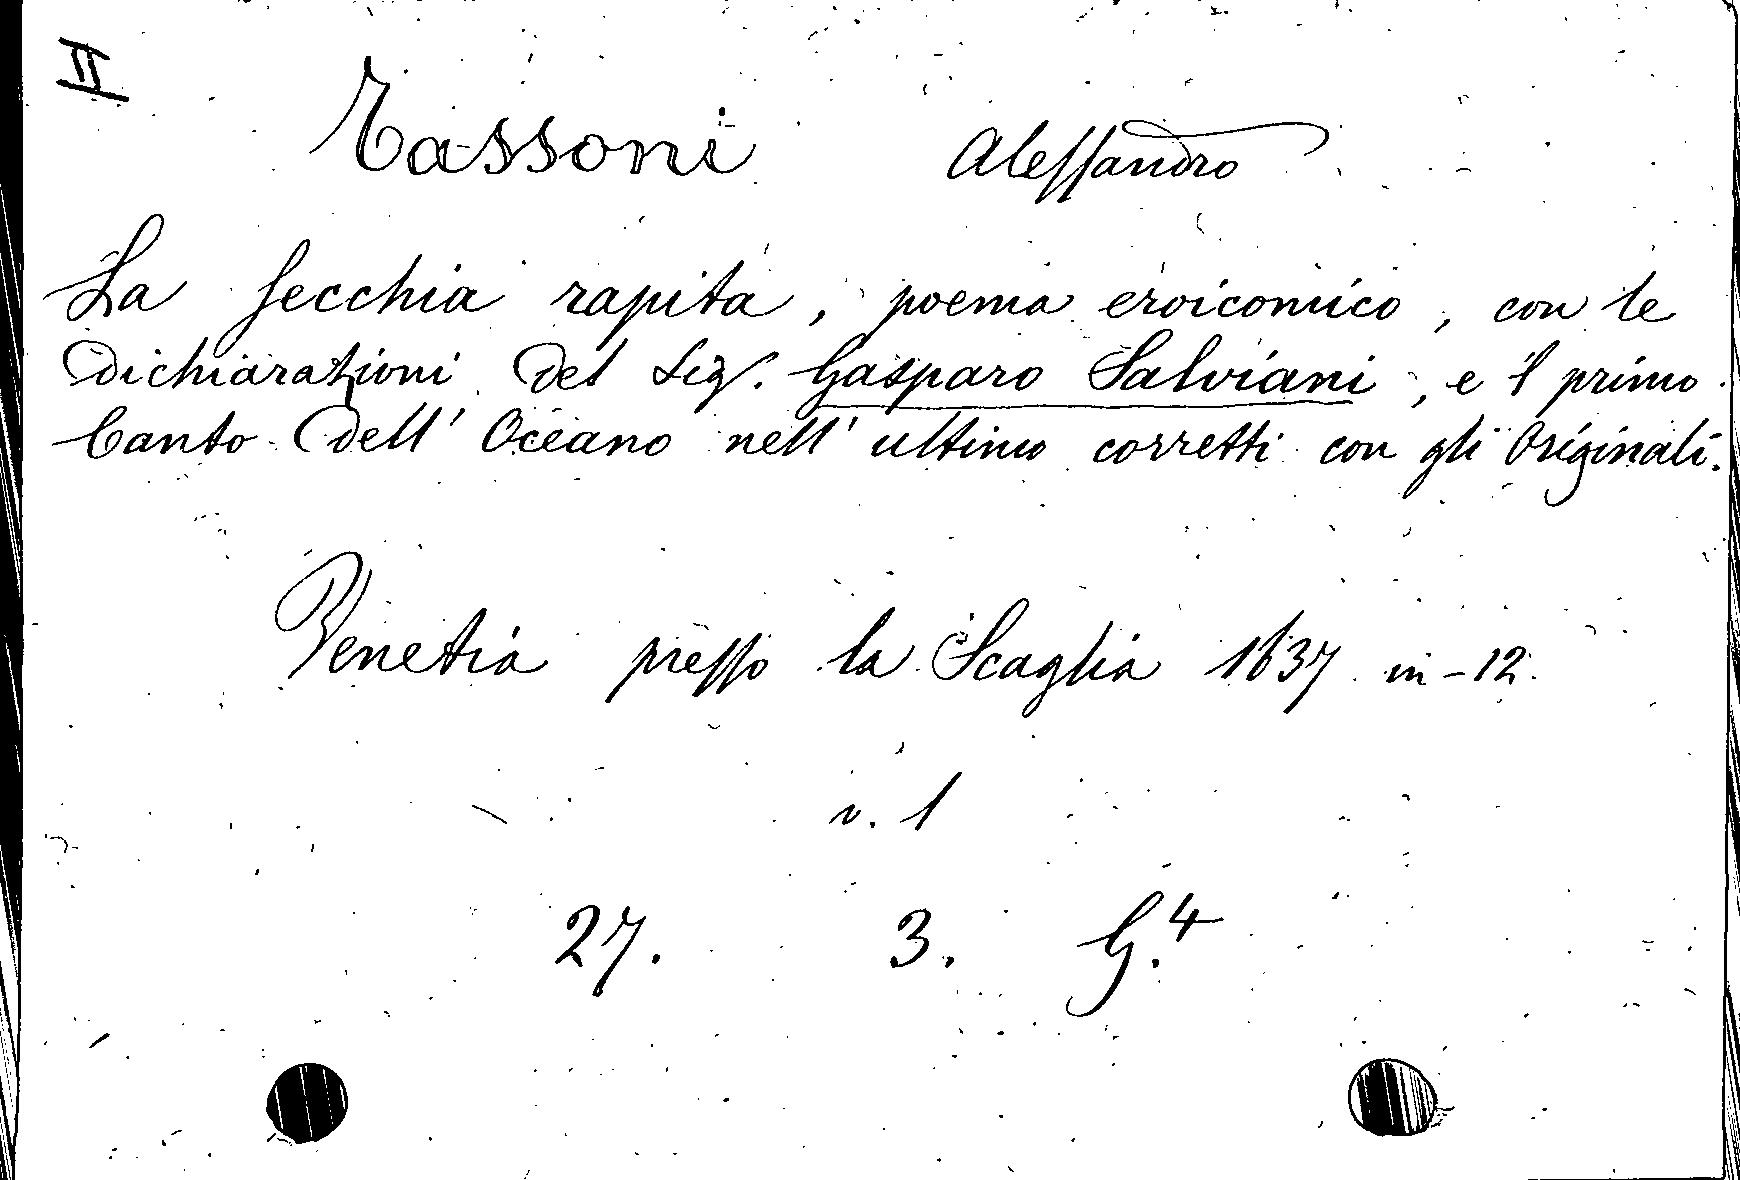 II
Tassoni Alessandro
La Secchia rapita, poema eroicomico, con le
dichiarationi del Sig. Gasparo Salviani, e il primo
Canto dell' Oceano nell' ultimo corretti con gli Originali.
Venetia presso la Scaglia 1637 in-12.
v. 1
27. 3. G.4